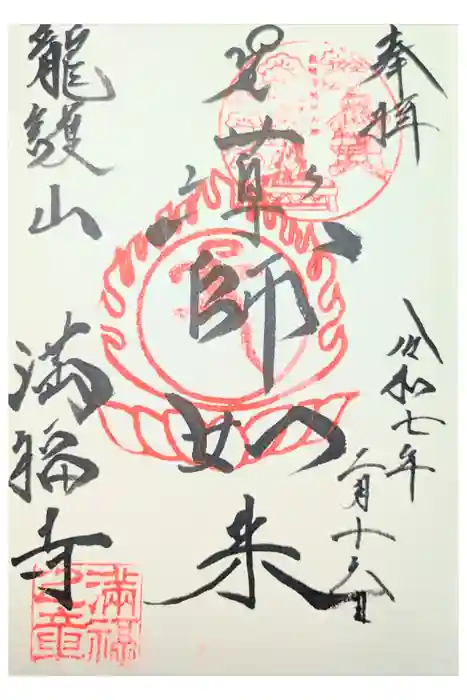 奉拝
令和七年
二月十六日
薬師如来
龍護山
満福寺
滿福